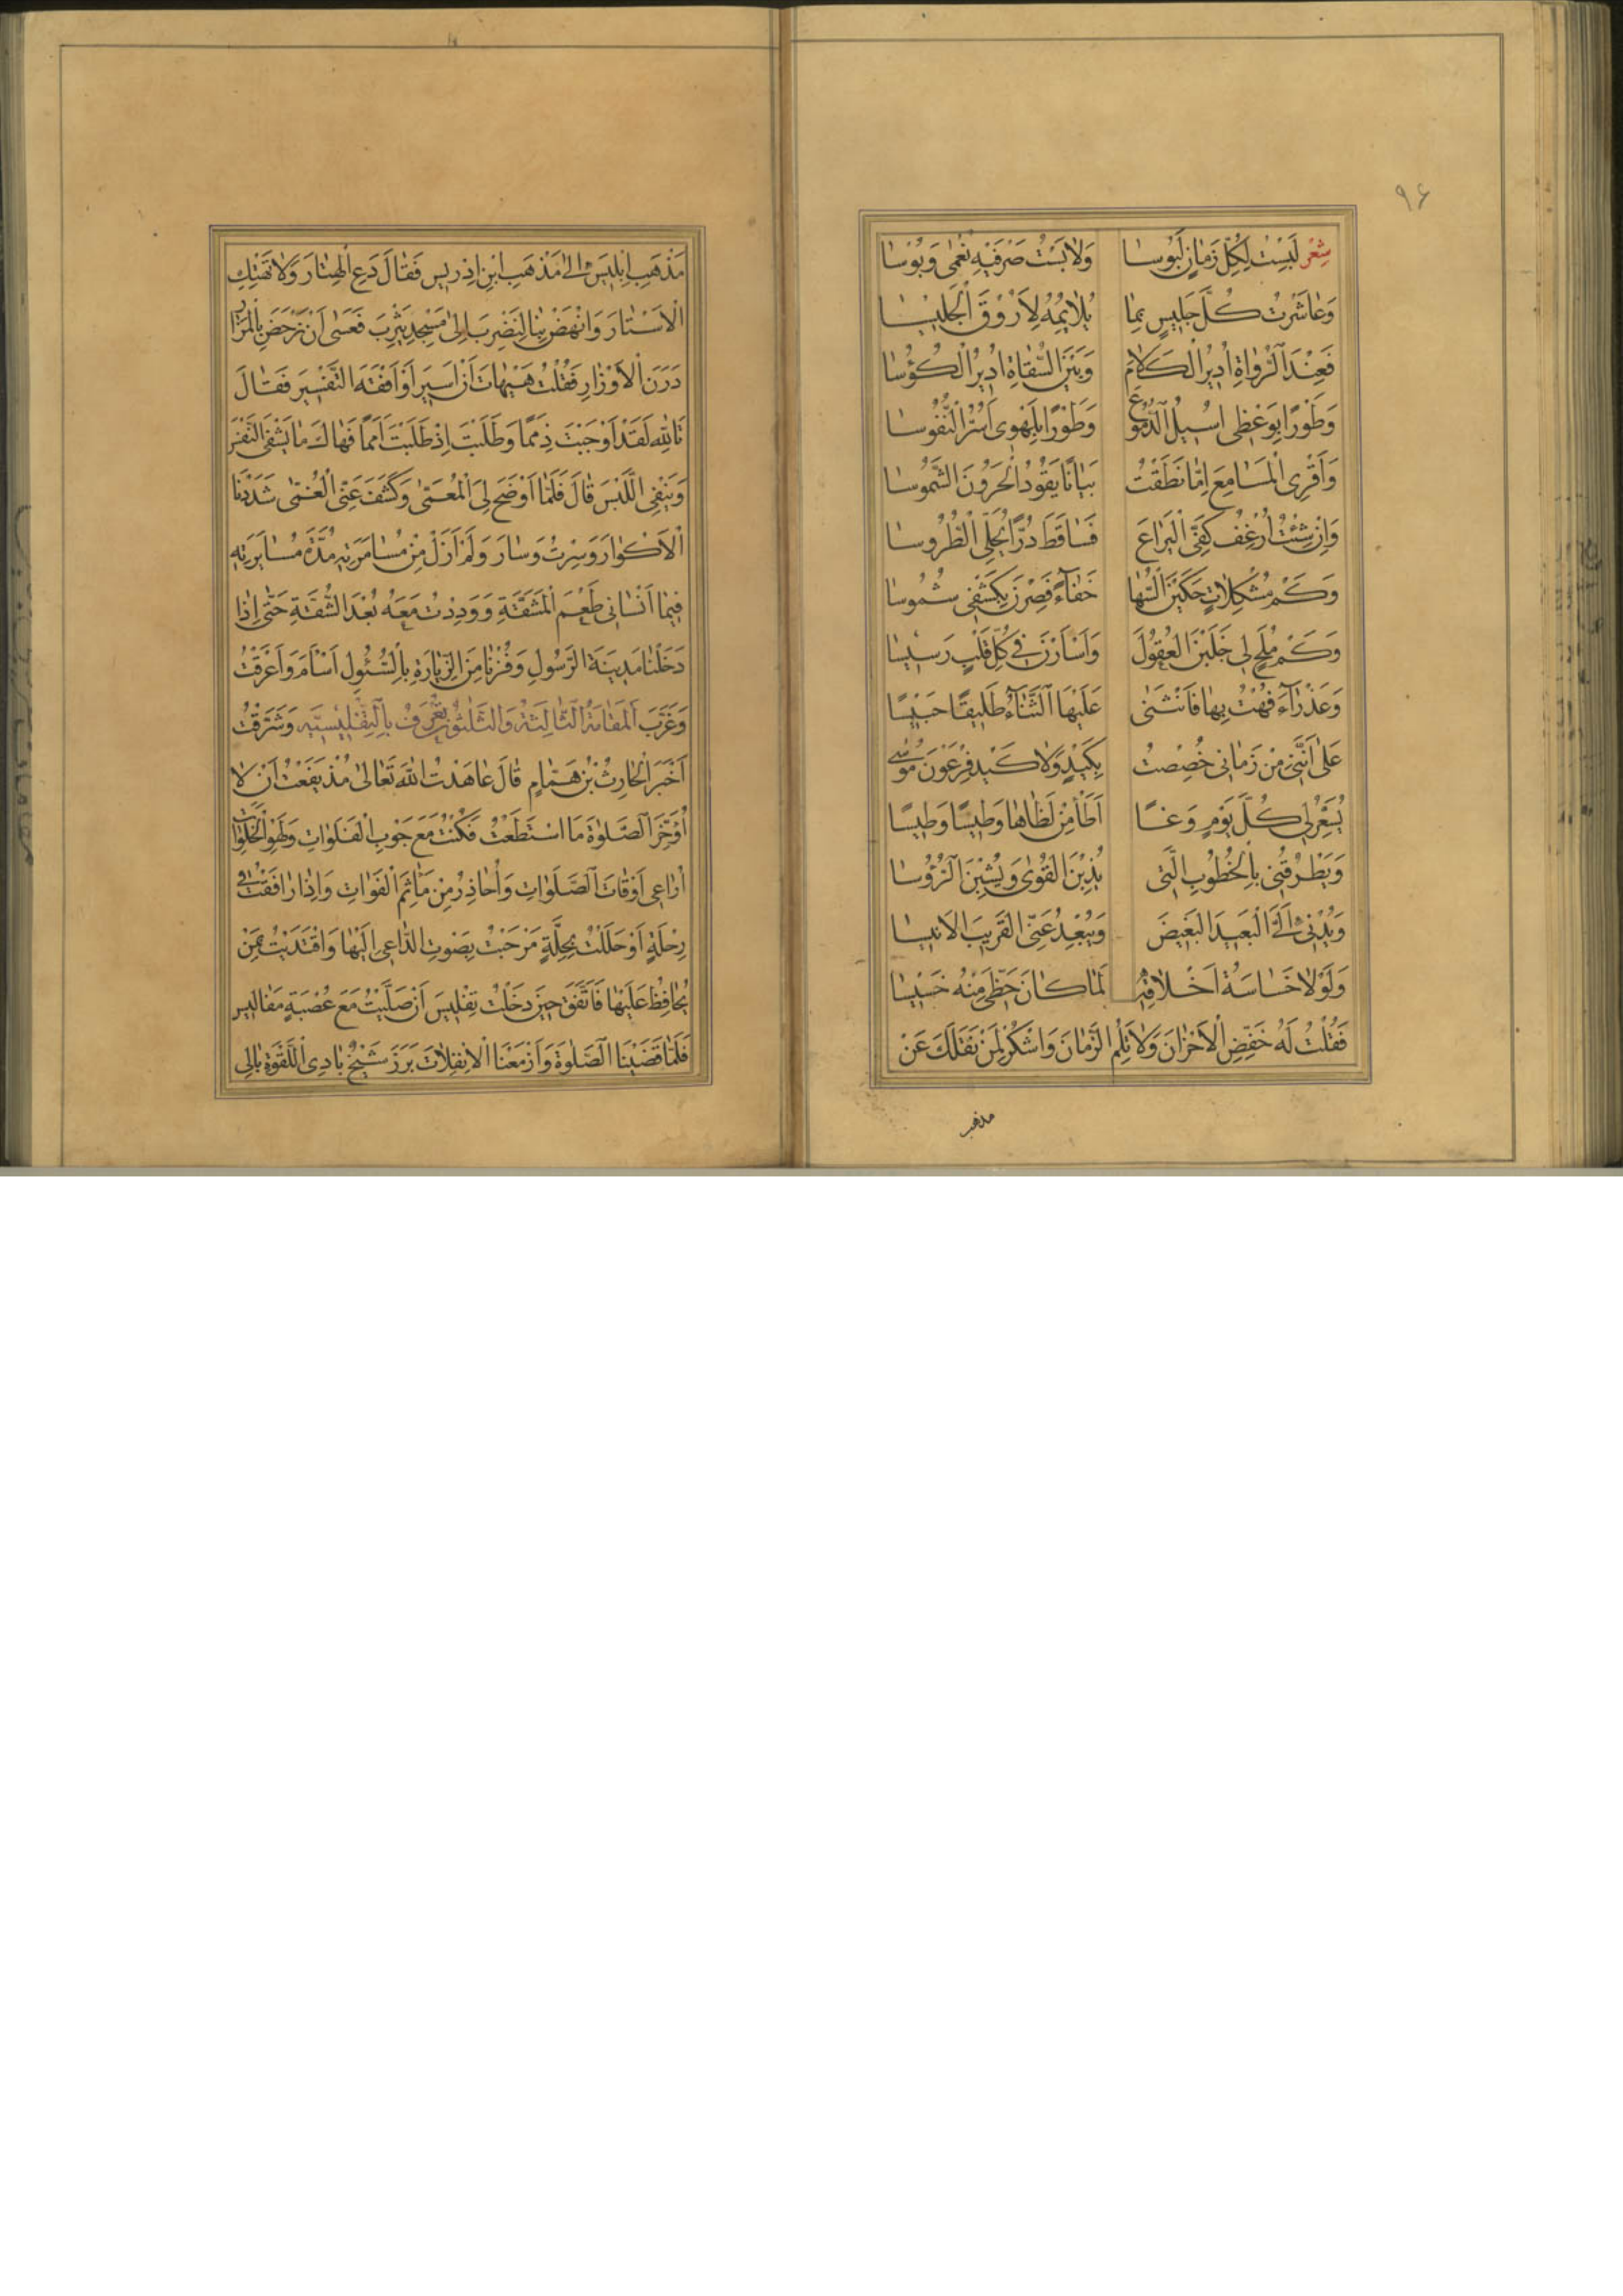 ٩٦
شِعْر لَبِسْتُ لِكُلِّ زَمَانٍ لَبُوسَا وَلَابَسْتُ صَرْفَيْهِ نُعْمٰى وَبُوسَا
وَعَاشَرْتُ كُلَّ جَلِيسٍ بِمَا يُلَايِمُهُ لِاَرُوقَ الْجَلِيسَا
فَعِنْدَ الرُّوَاةِ اُدِيرُ الْكَلَامَ وَبَيْنَ السُّقَاةِ اُدِيرُ الْكُؤُسَا
وَطَوْرًا بِوَعْظِى اُسِيلُ الدُّمُوعَ وَطَوْرًا بِلَهْوِى اَسُرُّ النُّفُوسَا
وَاَقْرِى الْمَسَامِعَ اِمَّا نَطَقْتُ بَيَانًا يَقُودُ الْحَرُونَ الشَّمُوسَا
وَاِنْ شِئْتُ اَرْعَفَ كَفِّى الْيَرَاعَ فَسَاقَطَ دُرًّا يُحَلِّى الطُّرُوسَا
وَكَمْ مُشْكِلَاتٍ حَكَيْنَ السُّهَا خَفَآءً فَصِرْنَ بِكَشْفِى شُمُوسَا
وَكَمْ مُلَحٍ لِى خَلَبْنَ الْعُقُولَ وَاَسْأَرْنَ فِى كُلِّ قَلْبٍ رَسِيسَا
وَعَذْرَآءَ فُهْتُ بِهَا فَانْثَنٰى عَلَيْهَا الثَّنَآءُ طَلِيقًا حَبِيسًا
عَلٰى اَنَّنِى مِنْ زَمَانِى خُصِصْتُ بِكَيْدٍ وَلَا كَيْدِ فِرْعَوْنَ مُوسٰى
يُسَعِّرُ لِى كُلَّ يَوْمٍ وَغًا اَطَأُ مِنْ لَظَاهَا وَطِيسًا وَطِيسًا
وَيَطْرُقُنِى بِالْخُطُوبِ الَّتِى يُذِبْنَ الْقُوٰى وَيُشِبْنَ الرُّؤُسَا
وَيُدْنِى اِلَىَّ الْبَعِيدَ الْبَغِيضَ وَيُبْعِدُ عَنِّى الْقَرِيبَ الْاَنِيسَا
وَلَوْلَا خَسَاسَةُ اَخْلَاقِهِ لَمَا كَانَ حَظِّى مِنْهُ خَسِيسَا
فَقُلْتُ لَهُ خَفِّضِ الْاَحْزَانَ وَلَا تَلُمِ الزَّمَانَ وَاشْكُرْ لِمَنْ نَقَلَكَ عَنْ
مذهب
مَذْهَبِ اِبْلِيسَ اِلٰى مَذْهَبِ ابْنِ اِدْرِيسَ فَقَالَ دَعِ الْهِتَارَ وَلَا تَهْتِكِ
الْاَسْتَارَ وَانْهَضْ بِنَا لِنَضْرِبَ اِلٰى مَسْجِدِ يَثْرِبَ فَعَسٰى اَنْ نَرْحَضَ بِالْمَزَارِ
دَرَنَ الْاَوْزَارِ فَقُلْتُ هَيْهَاتَ اَنْ اَسِيرَ اَوْ اَفْقَهَ التَّفْسِيرَ فَقَالَ
تَاللّٰهِ لَقَدْ اَوْجَبْتَ ذِمَمًا وَطَلَبْتَ اِذْ طَلَبْتَ اَمَمًا فَهَاكَ مَا يَشْفِى النَّفْسَ
وَيَنْفِى اللَّبْسَ قَالَ فَلَمَّا اَوْضَحَ لِىَ الْمُعَمّٰى وَكَشَفَ عَنِّى الْغُمّٰى شَدَدْنَا
الْاَكْوَارَ وَسِرْتُ وَسَارَ وَلَمْ اَزَلْ مِنْ مُسَامَرَتِهِ مُدَّةَ مُسَايَرَتِهِ
فِيمَا اَنْسَانِى طَعْمَ الْمَشَقَّةِ وَوَدِدْتُ مَعَهُ بُعْدَ الشُّقَّةِ حَتّٰى اِذَا
دَخَلْنَا مَدِينَةَ الرَّسُولِ وَفُزْنَا مِنَ الزِّيَارَةِ بِالسُّئُولِ اَشْأَمَ وَاَعْرَقْتُ
وَغَرَّبَ الْمَقَامَةُ الثَّالِثَةُ وَالثَّلٰثُونَ تُعْرَفُ بِالتِّفْلِيسِيَّهِ وَشَرَّقْتُ
اَخْبَرَ الْحَارِثُ بْنُ هَمَّامٍ قَالَ عَاهَدْتُ اللّٰهَ تَعَالٰى مُذْ يَفَعْتُ اَنْ لَا
اُؤَخِّرَ الصَّلٰوةَ مَا اسْتَطَعْتُ فَكُنْتُ مَعَ جَوْبِ الْفَلَوَاتِ وَلَهْوِ الْخَلَوَاتِ
اُرَاعِى اَوْقَاتَ الصَّلَوَاتِ وَاُحَاذِرُ مِنْ مَأْثَمِ الْفَوَاتِ وَاِذَا رَافَقْتُ فِى
رِحْلَةٍ اَوْ حَلَلْتُ بِحِلَّةٍ مَرْحَبْتُ بِصَوْتِ الدَّاعِى اِلَيْهَا وَاقْتَدَيْتُ بِمَنْ
يُحَافِظُ عَلَيْهَا فَاتَّفَقَ حِينَ دَخَلْتُ تِفْلِيسَ اَنْ صَلَّيْتُ مَعَ عُصْبَةٍ مَفَالِيسَ
فَلَمَّا قَضَيْنَا الصَّلٰوةَ وَاَزْمَعْنَا الْاِنْفِلَاتَ بَرَزَ شَيْخٌ بَادِى اللَّقْوَةِ بَالِى